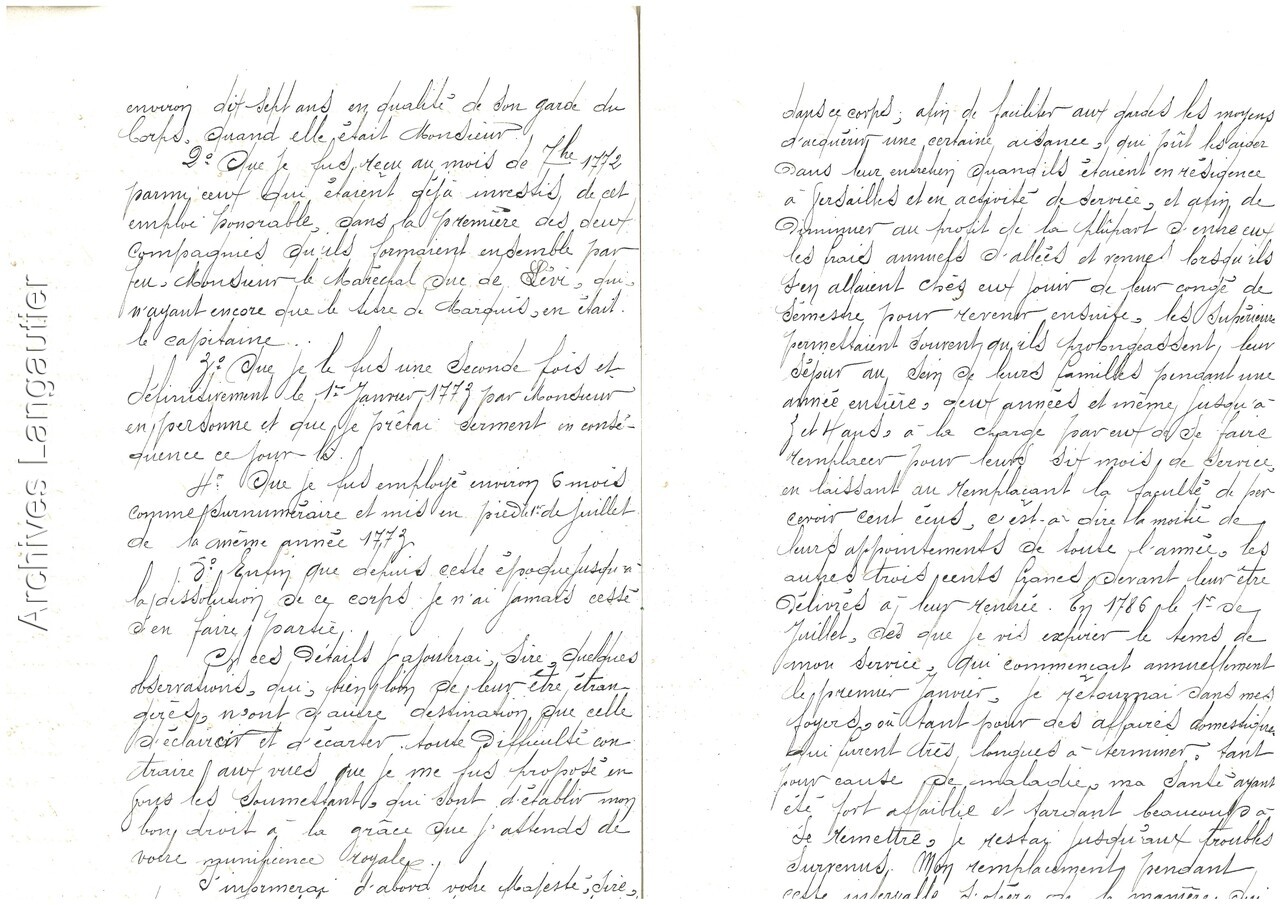 Archives Langautier
environ dix sept ans en qualité de son garde du
Corps, quand elle était Monsieur.
2º Que je fus reçu au mois de 7bre 1772
parmi ceux qui étaient déjà investis de cet
emploi honorable, dans la première des deux
Compagnies qu'ils formaient ensemble par
feu Monsieur le Maréchal Duc de Lévi, qui
n'ayant encore que le titre de Marquis, en était
le capitaine...
3º Que je le fus une seconde fois et
définitivement le 1er Janvier 1773 par Monsieur
en personne et que je prêtai serment en consé-
quence ce jour là.
4º Que je fus employé environ 6 mois
comme surnuméraire et mis en pied 1er de Juillet
de la même année 1773
5º Enfin que depuis cette époque jusqu'à
la dissolution de ce corps je n'ai jamais cessé
d'en faire partie.
ces Détails j'ajouterai, Sire, quelques
observations, qui, bien loin de leur être étran-
gères, n'ont d'autre destination que celle
d'éclaircir et d'écarter toute difficulté con
traire aux vues que je me fus proposé en
vous les soumettant, qui sont d'établir mon
bon droit à la grâce que j'attends de
votre munificence royale.
J'informerai d'abord votre Majesté, Sire,
dans ce corps, afin de faciliter aux gardes les moyens
d'acquérir une certaine aisance, qui pût les aider
Dans leur entretien quand ils étaient en résidence
à Versailles et en activité de service, et afin de
Diminuer au profit de la plûpart d'entre eux
les frais annuels d'allées et venues lorsqu'ils
s'en allaient chès eux jouir de leur congé de
Sémestre pour revenir ensuite, les supérieurs
permettaient souvent qu'ils prolongeassent leur
séjour au sein de leurs familles pendant une
année entière, deux années et même jusqu'à
3 et 4 ans, à la charge par eux de se faire
remplacer pour leurs six mois de service,
en laissant au remplaçant la faculté de per
cevoir cent écus, c'est-à-dire la moitié de
leurs appointements de toute l'année, les
autres trois cents francs devant leur être
Délivrés à leur rentrée. En 1786 le 1er de
Juillet, dès que je vis expirer le tems de
mon service, qui commençait annuellement
le premier Janvier, je retournai dans mes
foyers, où tant pour des affaires domestiques
qui furent très longues à terminer, tant
pour cause de maladie, ma santé ayant
été fort affaiblie et tardant beaucoup à
se remettre, je restai jusqu'aux troubles
survenus. Mon remplacement pendant
cette intervalle s'opéra de la manière qui